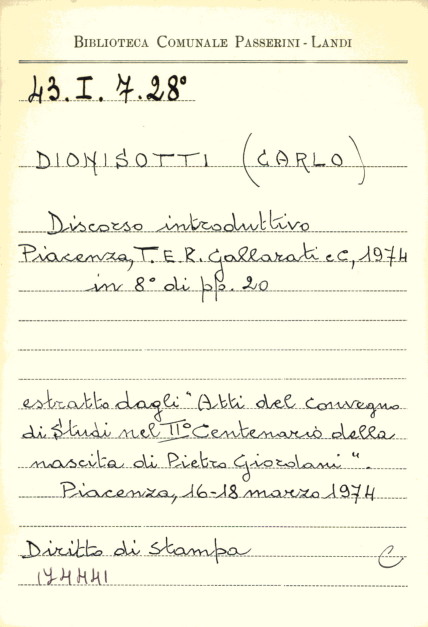 BIBLIOTECA COMUNALE PASSERINI - LANDI
43. I. 7. 28°
DIONISOTTI (CARLO)
Discorso introduttivo
Piacenza, T.E.R. Gallarati e C, 1974
in 8° di pp. 20
estratto dagli "Atti del Convegno
di Studi nel II° Centenario della
nascita di Pietro Giordani".
Piacenza, 16-18 marzo 1974
Diritto di stampa
C
174441